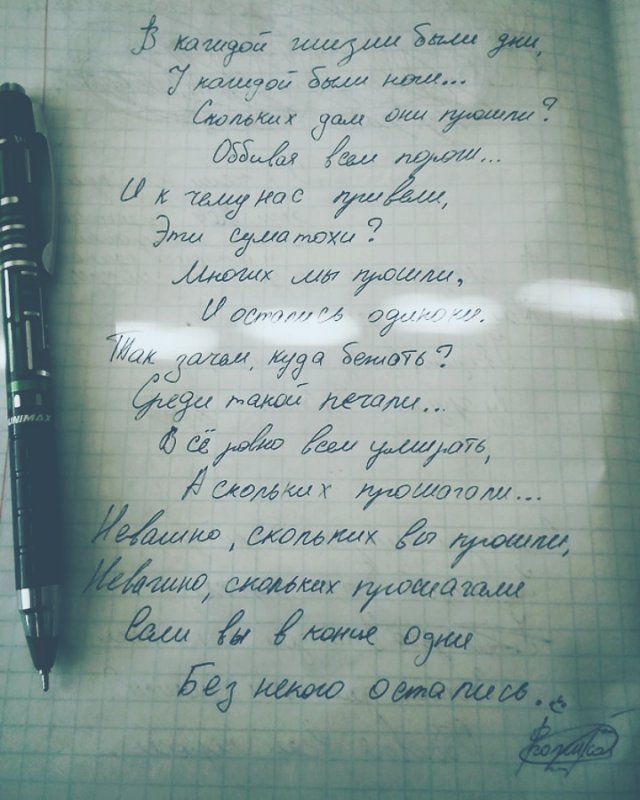 В каждой жизни были дни,
И каждой были ночи...
Скольких дам они прошли?
Оббивая всем пороги...
И к чему нас привели,
Эти суматохи?
Многих мы прошли,
И остались одиноки.
Так зачем, куда бежать?
Среди такой печали...
Всё равно всем умирать,
А скольких прошагали...
Неважно, скольких вы прошли,
Неважно, скольких прошагали
Если вы в конце одни
Без некого остались.
UNIMAX